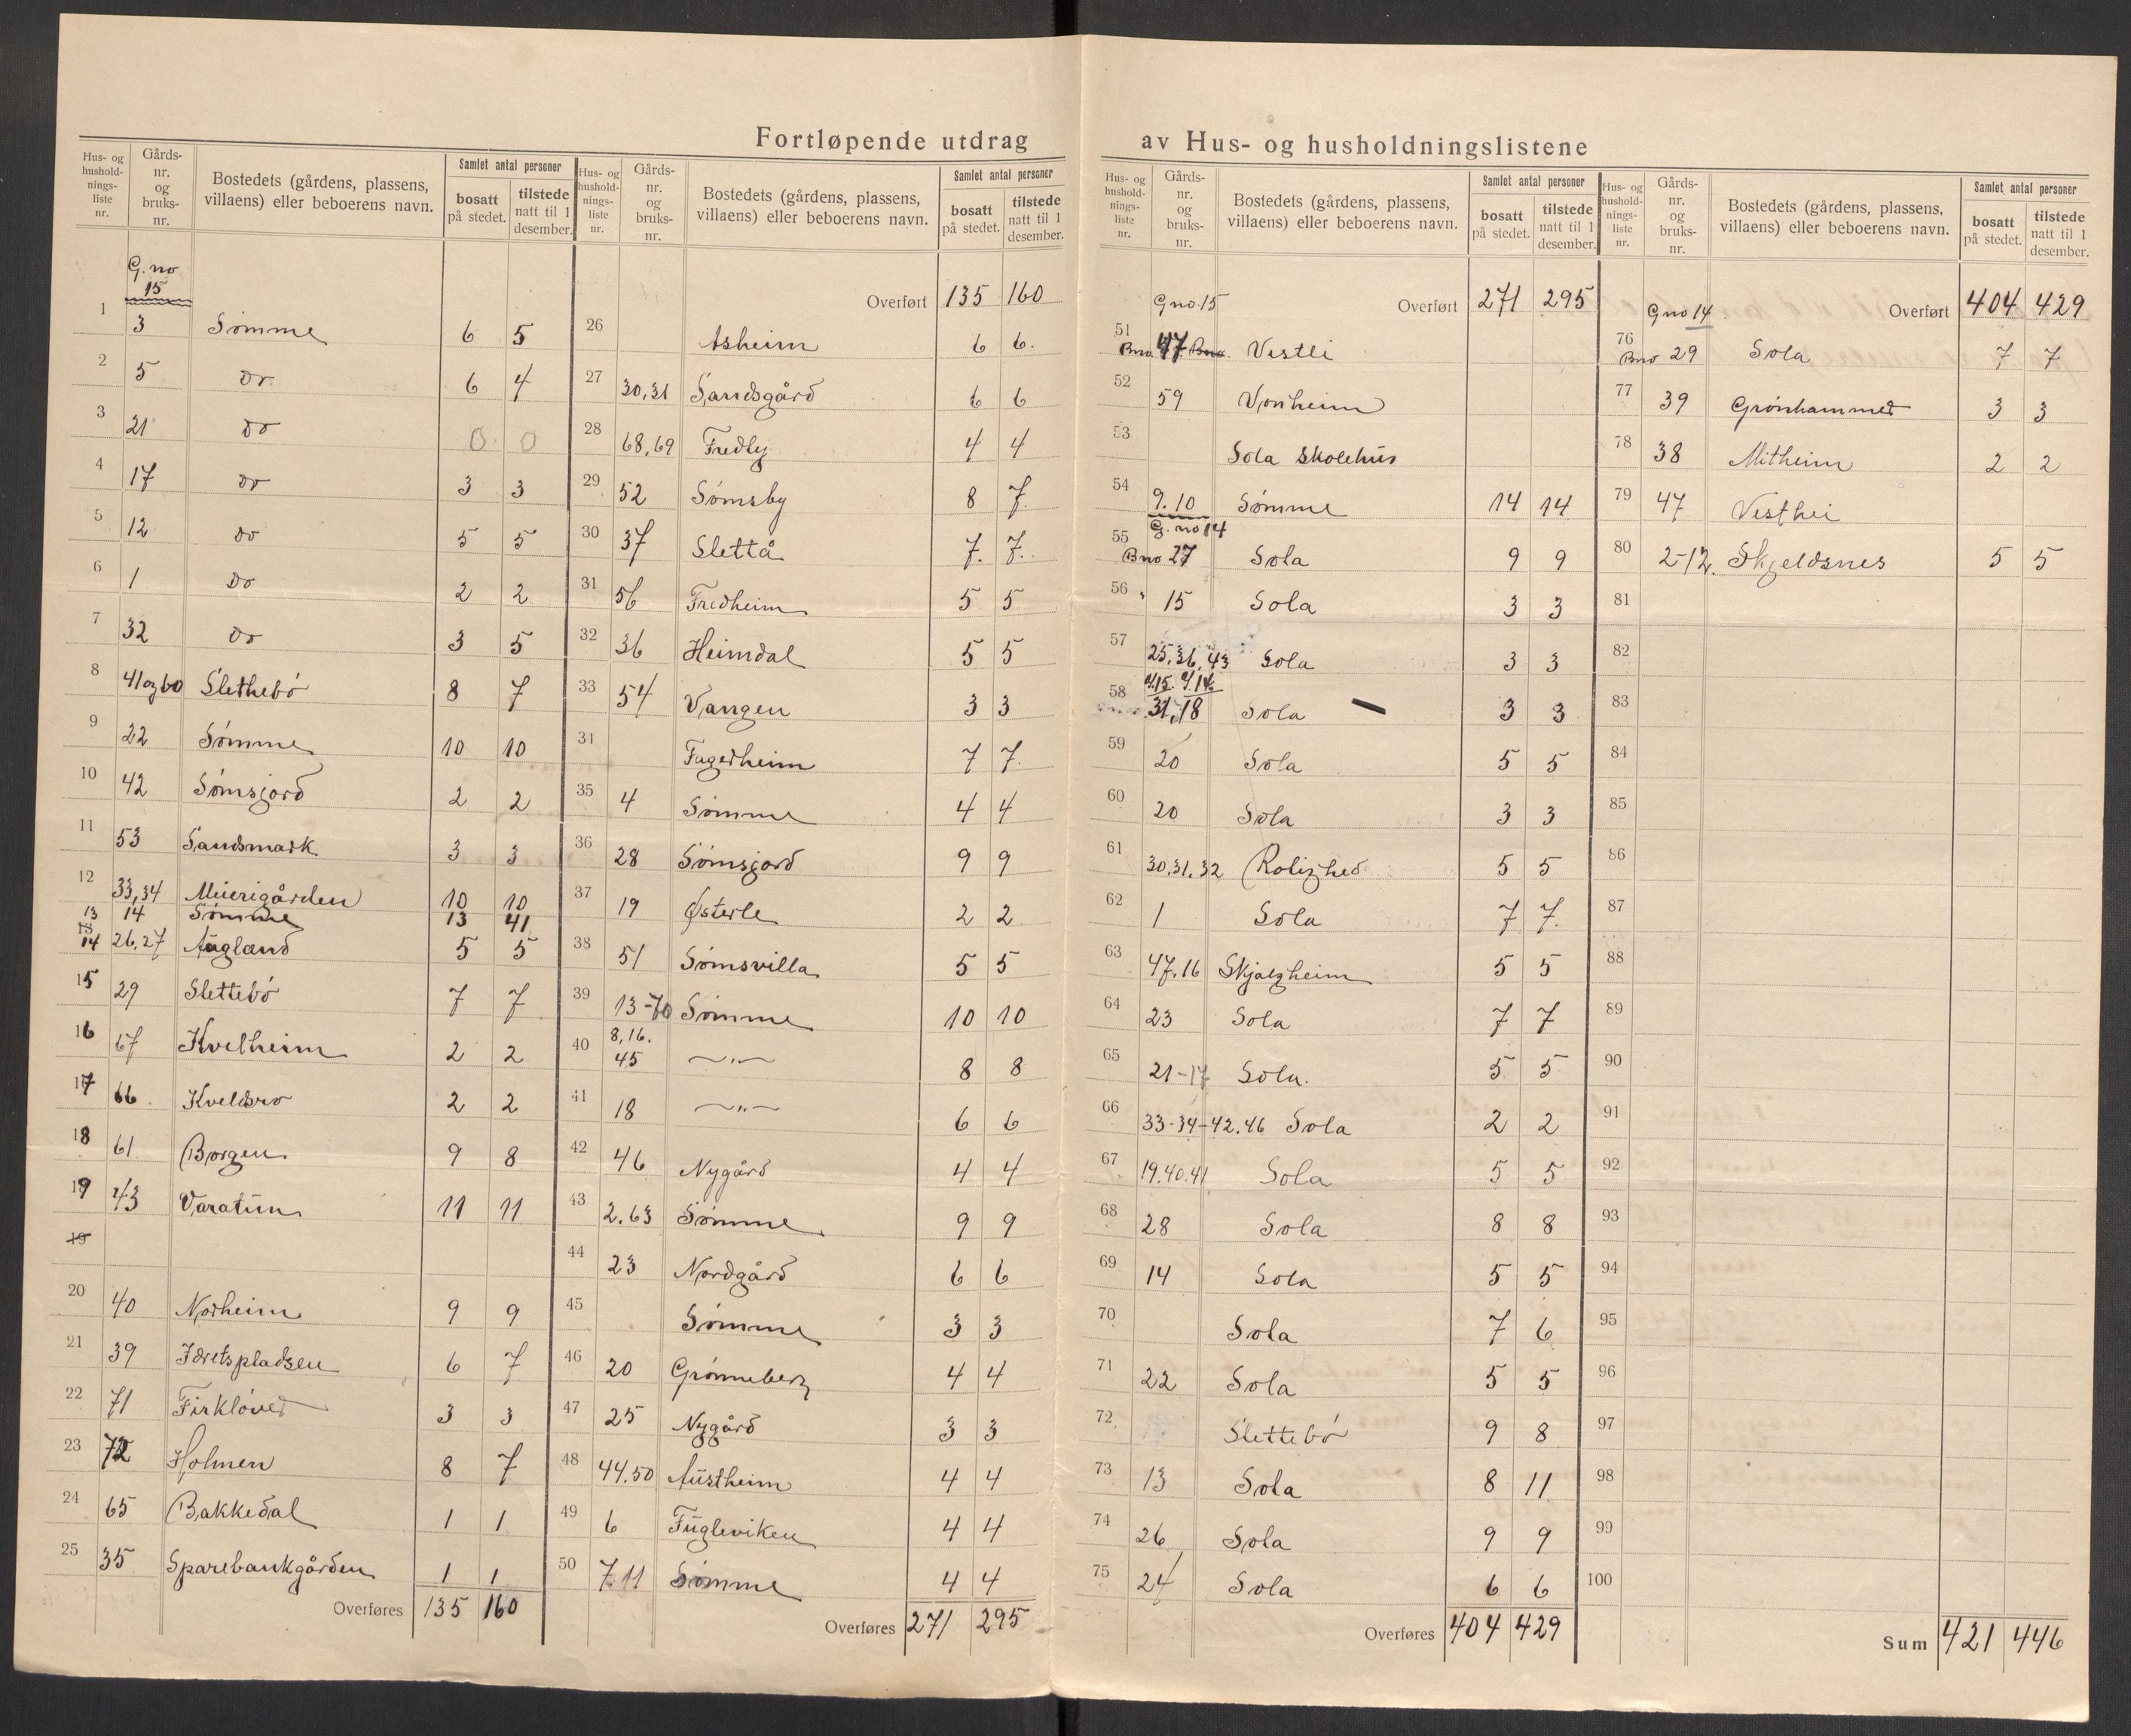 Fortløpende utdrag av Hus- og husholdningslistene
Hus- og hushold-nings-liste nr. | Gårds-nr. og bruks-nr. | Bostedets (gårdens, plassens, villaens) eller beboerens navn. | Samlet antal personer | bosatt på stedet. | tilstede natt til 1 desember.
G. no
15
1 3 Sømme 6 5
2 5 do 6 4
3 21 do 0 0
4 17 do 3 3
5 12 do 5 5
6 1 do 2 2
7 32 do 3 5
8 41 og 60 Slethebø 8 7
9 22 Sømme 10 10
10 42 Sømsjord 2 2
11 53 Sandsmark 3 3
12 33,34 Meierigården 10 10
13 14 Sømme 13 41
14 26,27 Augland 5 5
15 29 Slettebø 7 7
16 67 Kvelheim 2 2
17 66 Kveldsro 2 2
18 61 Borgen 9 8
19 43 Varatun 11 11
19
20 40 Norheim 9 9
21 39 Idretspladsen 6 7
22 71 Firkløver 3 3
23 72 Holmen 8 7
24 65 Bakkedal 1 1
25 35 Sparebankgården 1 1
Overføres 135 160
Hus- og hushold-nings-liste nr. | Gårds-nr. og bruks-nr. | Bostedets (gårdens, plassens, villaens) eller beboerens navn. | Samlet antal personer | bosatt på stedet. | tilstede natt til 1 desember.
Overført 135 160
26 Asheim 6 6.
27 30,31 Sandsgård 6 6
28 68,69 Fredly 4 4
29 52 Sømsby 8 7.
30 37 Slettå 7. 7.
31 56 Fredheim 5 5
32 36 Heimdal 5 5
33 54 Vangen 3 3
34 Fagerheim 7 7.
35 4 Sømme 4 4
36 28 Sømsjord 9 9
37 19 Østerle 2 2
38 51 Sømsvilla 5 5
39 13-70 Sømme 10 10
40 8,16. 45 —"— 8 8
41 18 —"— 6 6
42 46 Nygård 4 4
43 2.63 Sømme 9 9
44 23 Nordgård 6 6
45 Sømme 3 3
46 20 Grønneberg 4 4
47 25 Nygård 3 3
48 44.50 Austheim 4 4
49 6 Fugleviken 4 4
50 7.11 Sømme 4 4
Overføres 271 295
Hus- og hushold-nings-liste nr. | Gårds-nr. og bruks-nr. | Bostedets (gårdens, plassens, villaens) eller beboerens navn. | Samlet antal personer | bosatt på stedet. | tilstede natt til 1 desember.
G no 15 Overført 271 295
51 Bno 47 Bno. Vestli
52 59 Vonheim
53 Sola skolehus
54 9.10 Sømme 14 14
G. no 14
55 Bno 27 Sola 9 9
56 15 Sola 3 3
57 25,36,43 Sola 3 3
58 31,18 Sola 3 3
59 20 Sola 5 5
60 20 Sola 3 3
61 30.31.32 Rolighed 5 5
62 1 Sola 7 7.
63 47.16 Skjalgheim 5 5
64 23 Sola 7 7
65 21-17 Sola. 5 5
66 33-34-42.46 Sola 2 2
67 19.40.41 Sola 5 5
68 28 Sola 8 8
69 14 Sola 5 5
70 Sola 7 6
71 22 Sola 5 5
72 Slettebø 9 8
73 13 Sola 8 11
74 26 Sola 9 9
75 24 Sola 6 6
Overføres 404 429
Hus- og hushold-nings-liste nr. | Gårds-nr. og bruks-nr. | Bostedets (gårdens, plassens, villaens) eller beboerens navn. | Samlet antal personer | bosatt på stedet. | tilstede natt til 1 desember.
G no 14 Overført 404 429
76 Bno 29 Sola 7 7
77 39 Grønhammer 3 3
78 38 Mitheim 2 2
79 47 Vesthei
80 2-12. Skjeldsnes 5 5
81
82
83
84
85
86
87
88
89
90
91
92
93
94
95
96
97
98
99
100
Sum 421 446